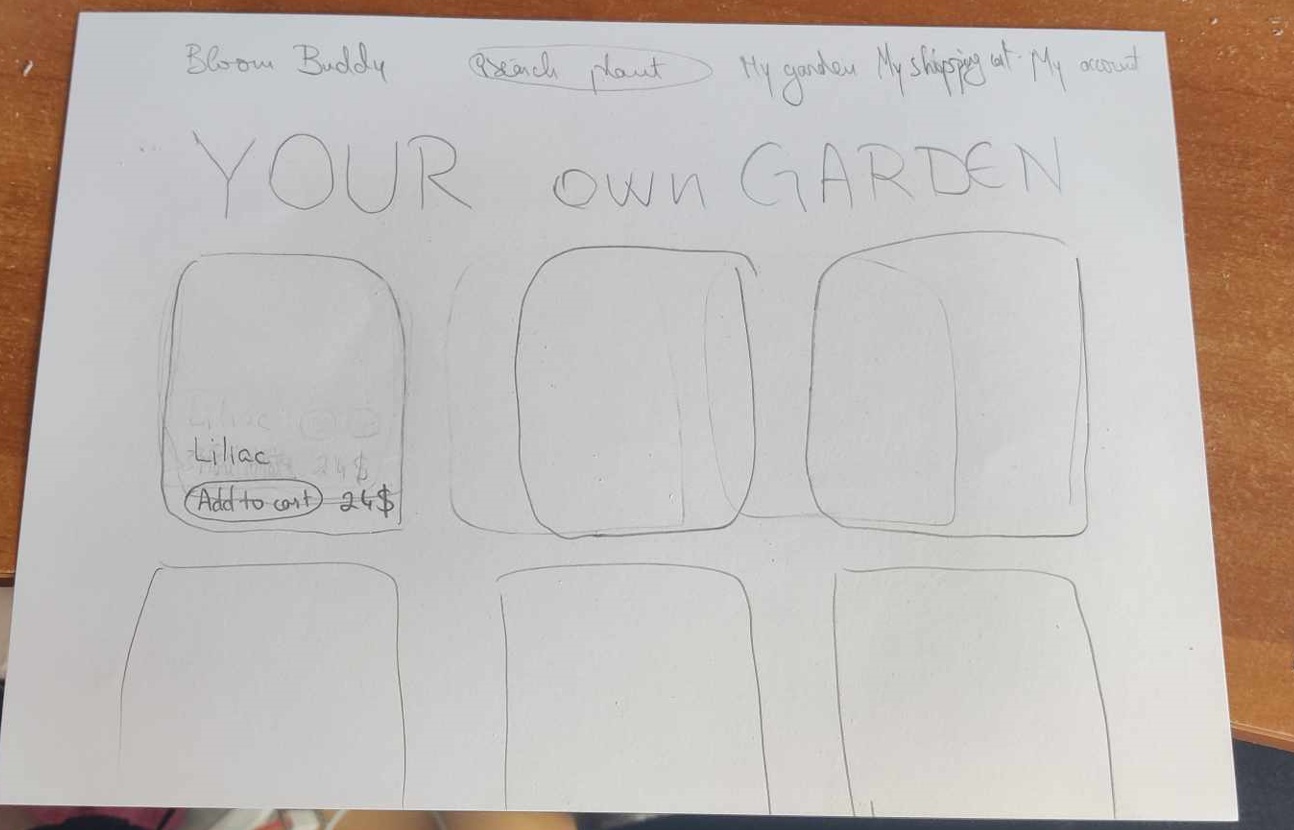 Bloom Buddy Search plant My garden My shopping cart My account
YOUR own GARDEN
Liliac
Liliac
24$
Add to cart 24$